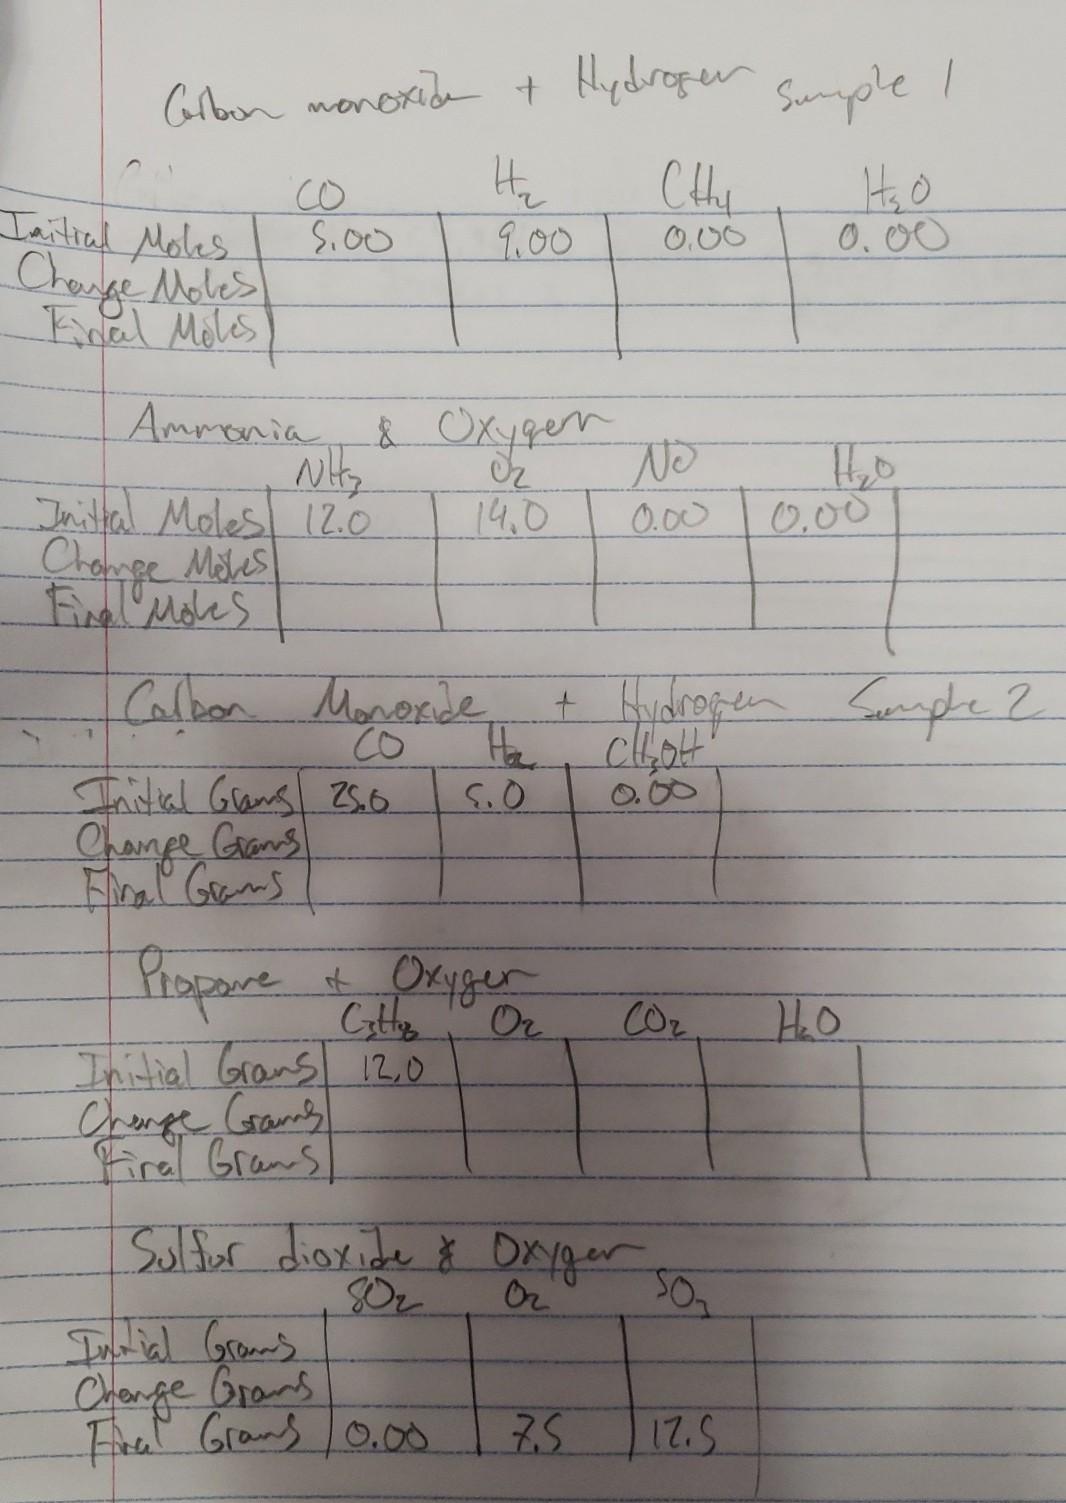 Carbon monoxide + Hydrogen Sample 1
CO H2 CH4 H2O
Initial Moles 5.00 9.00 0.00 0.00
Change Moles
Final Moles
Ammonia & Oxygen
NH3 O2 NO H2O
Initial Moles 12.0 14.0 0.00 0.00
Change Moles
Final Moles
Carbon Monoxide + Hydrogen Sample 2
CO H2 CH3OH
Initial Grams 25.0 5.0 0.00
Change Grams
Final Grams
Propane + Oxygen
C3H8 O2 CO2 H2O
Initial Grams 12.0
Change Grams
Final Grams
Sulfur dioxide & Oxygen
SO2 O2 SO3
Initial Grams
Change Grams
Final Grams 0.00 7.5 12.5